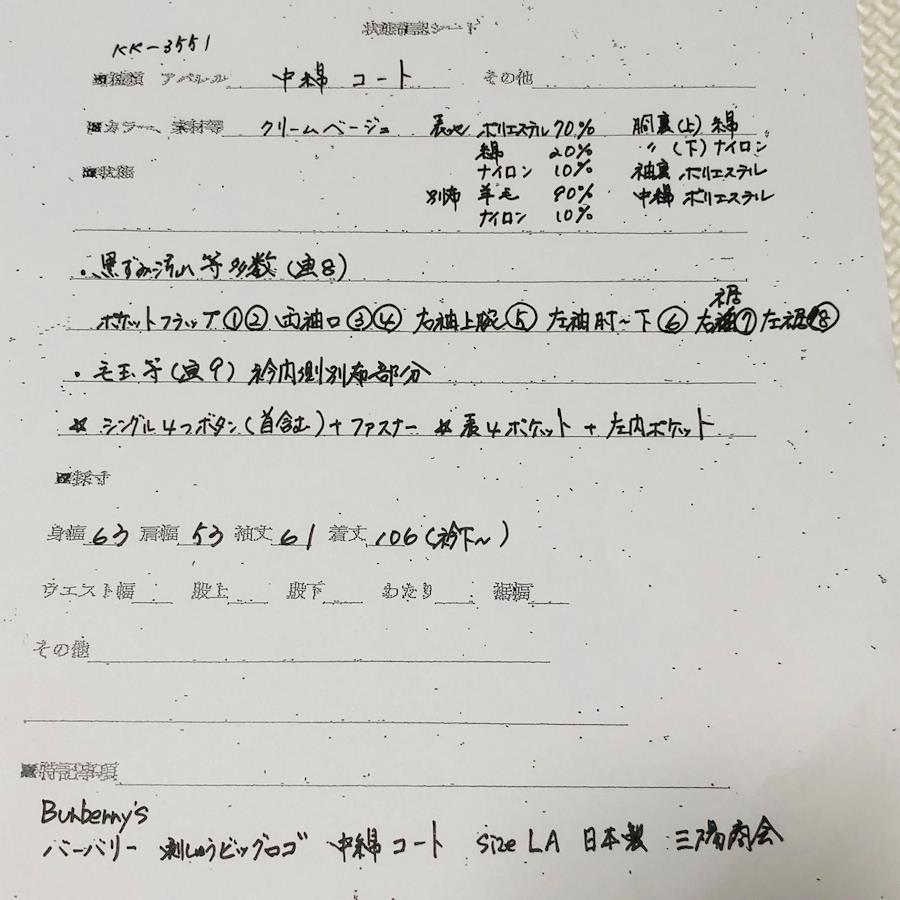 状態確認シート
KK-3551
■種類 アパレル 中綿 コート その他
■カラー、素材等 クリームベージュ 表地 ポリエステル70% 胴裏(上)綿
綿 20% 〃(下)ナイロン
■状態 ナイロン 10% 袖裏 ポリエステル
別布 羊毛 90% 中綿 ポリエステル
ナイロン 10%
・黒ずみ汚れ等多数(画8)
ポケットフラップ①② 両袖口③④ 右袖上腕⑤ 左袖肘～下⑥ 右裾⑦ 左裾⑧
・毛玉等(画9) 衿内側別布部分
☆ シングル4つボタン(首含む)+ファスナー ☆ 表4ポケット + 左内ポケット
■採寸
身幅 63 肩幅 53 袖丈 61 着丈 106(衿下～)
ウエスト幅 股上 股下 わたり 裾幅
その他
■特記事項
Burberry's
バーバリー 刺しゅうビッグロゴ 中綿 コート size LA 日本製 三陽商会